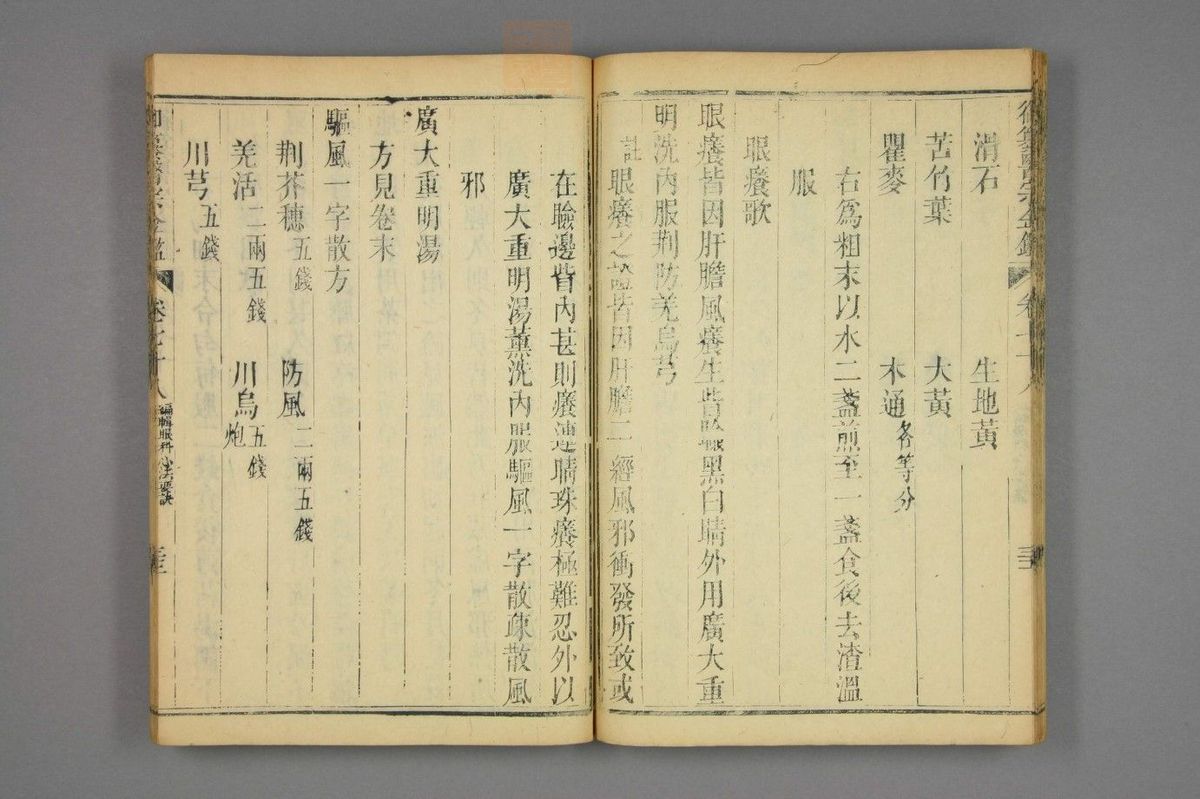 滑石　生地黃
苦竹葉　大黃
瞿麥　木通各等分
右爲粗末以水二盞煎至一盞食後去渣溫
服
眼癢歌
眼癢皆因肝膽風癢生眥瞼黑白睛外用廣大重
明洗內服荊防羌烏芎
註眼癢之證皆因肝膽二經風邪衝發所致或
在瞼邊眥內甚則癢連睛珠癢極難忍外以
廣大重明湯薰洗內服驅風一字散疎散風
邪
廣大重明湯
方見卷末
驅風一字散方
荆芥穗五錢　防風二兩五錢
羌活二兩五錢　川烏炮五錢
川芎五錢
卷七十八
編輯眼科心法要訣